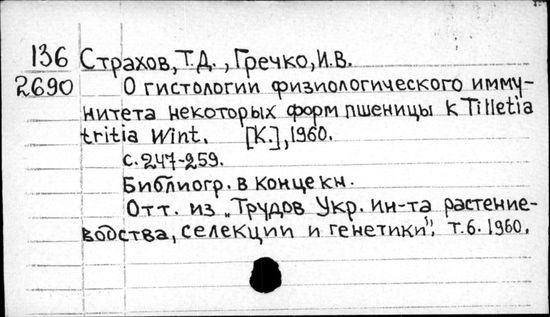 136 Страхов,Т.Д., Гречко,И.В.
2690 О гистологии физиологического имму-
нитета некоторых форм пшеницы к Tilletia
tritia Wint. [К.],1960.
с.247-259.
Библиогр. в конце кн.
Отт. из „Трудов Укр. ин-та растение-
водства, селекции и генетики", т.6. 1960.